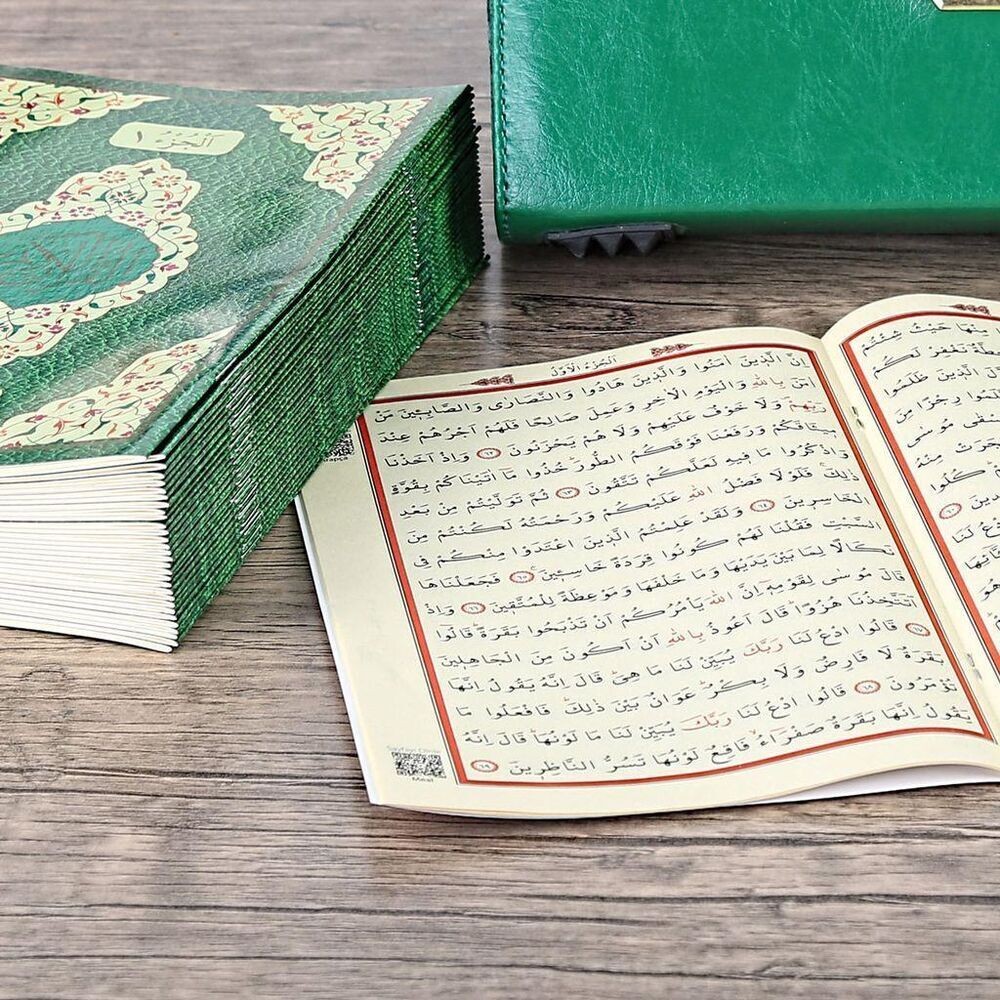 اَلْجُزْءُ الْاَوَّلُ
اِنَّ الَّذٖينَ اٰمَنُوا وَالَّذٖينَ هَادُوا وَالنَّصَارٰى وَالصَّابِـٖٔينَ مَنْ
اٰمَنَ بِاللّٰهِ وَالْيَوْمِ الْاٰخِرِ وَعَمِلَ صَالِحًا فَلَهُمْ اَجْرُهُمْ عِنْدَ
رَبِّهِمْ وَلَا خَوْفٌ عَلَيْهِمْ وَلَا هُمْ يَحْزَنُونَ ٦٢ وَاِذْ اَخَذْنَا
مٖيثَاقَكُمْ وَرَفَعْنَا فَوْقَكُمُ الطُّورَ خُذُوا مَا اٰتَيْنَاكُمْ بِقُوَّةٍ
وَاذْكُرُوا مَا فٖيهِ لَعَلَّكُمْ تَتَّقُونَ ٦٣ ثُمَّ تَوَلَّيْتُمْ مِنْ بَعْدِ
ذٰلِكَ فَلَوْلَا فَضْلُ اللّٰهِ عَلَيْكُمْ وَرَحْمَتُهُ لَكُنْتُمْ مِنَ
الْخَاسِرٖينَ ٦٤ وَلَقَدْ عَلِمْتُمُ الَّذٖينَ اعْتَدَوْا مِنْكُمْ فِي
السَّبْتِ فَقُلْنَا لَهُمْ كُونُوا قِرَدَةً خَاسِـٖٔينَ ٦٥ فَجَعَلْنَاهَا
نَكَالًا لِمَا بَيْنَ يَدَيْهَا وَمَا خَلْفَهَا وَمَوْعِظَةً لِلْمُتَّقٖينَ ٦٦ وَاِذْ
قَالَ مُوسٰى لِقَوْمِهٖ اِنَّ اللّٰهَ يَأْمُرُكُمْ اَنْ تَذْبَحُوا بَقَرَةً قَالُوا
اَتَتَّخِذُنَا هُزُوًا قَالَ اَعُوذُ بِاللّٰهِ اَنْ اَكُونَ مِنَ الْجَاهِلٖينَ
٦٧ قَالُوا ادْعُ لَنَا رَبَّكَ يُبَيِّنْ لَنَا مَا هِيَ قَالَ اِنَّهُ يَقُولُ اِنَّهَا
بَقَرَةٌ لَا فَارِضٌ وَلَا بِكْرٌ عَوَانٌ بَيْنَ ذٰلِكَ فَافْعَلُوا مَا
تُؤْمَرُونَ ٦٨ قَالُوا ادْعُ لَنَا رَبَّكَ يُبَيِّنْ لَنَا مَا لَوْنُهَا قَالَ اِنَّهُ
يَقُولُ اِنَّهَا بَقَرَةٌ صَفْرَاءُ فَاقِعٌ لَوْنُهَا تَسُرُّ النَّاظِرٖينَ ٦٩
Sayfayı Dinle
Meal
مِنْهَا حَيْثُ شِئْتُمْ
نَغْفِرْ لَكُمْ
الَّذٖينَ ظَلَمُوا
رِجْزًا مِنَ
مُوسٰى
مِنْهُ
كُلُوا